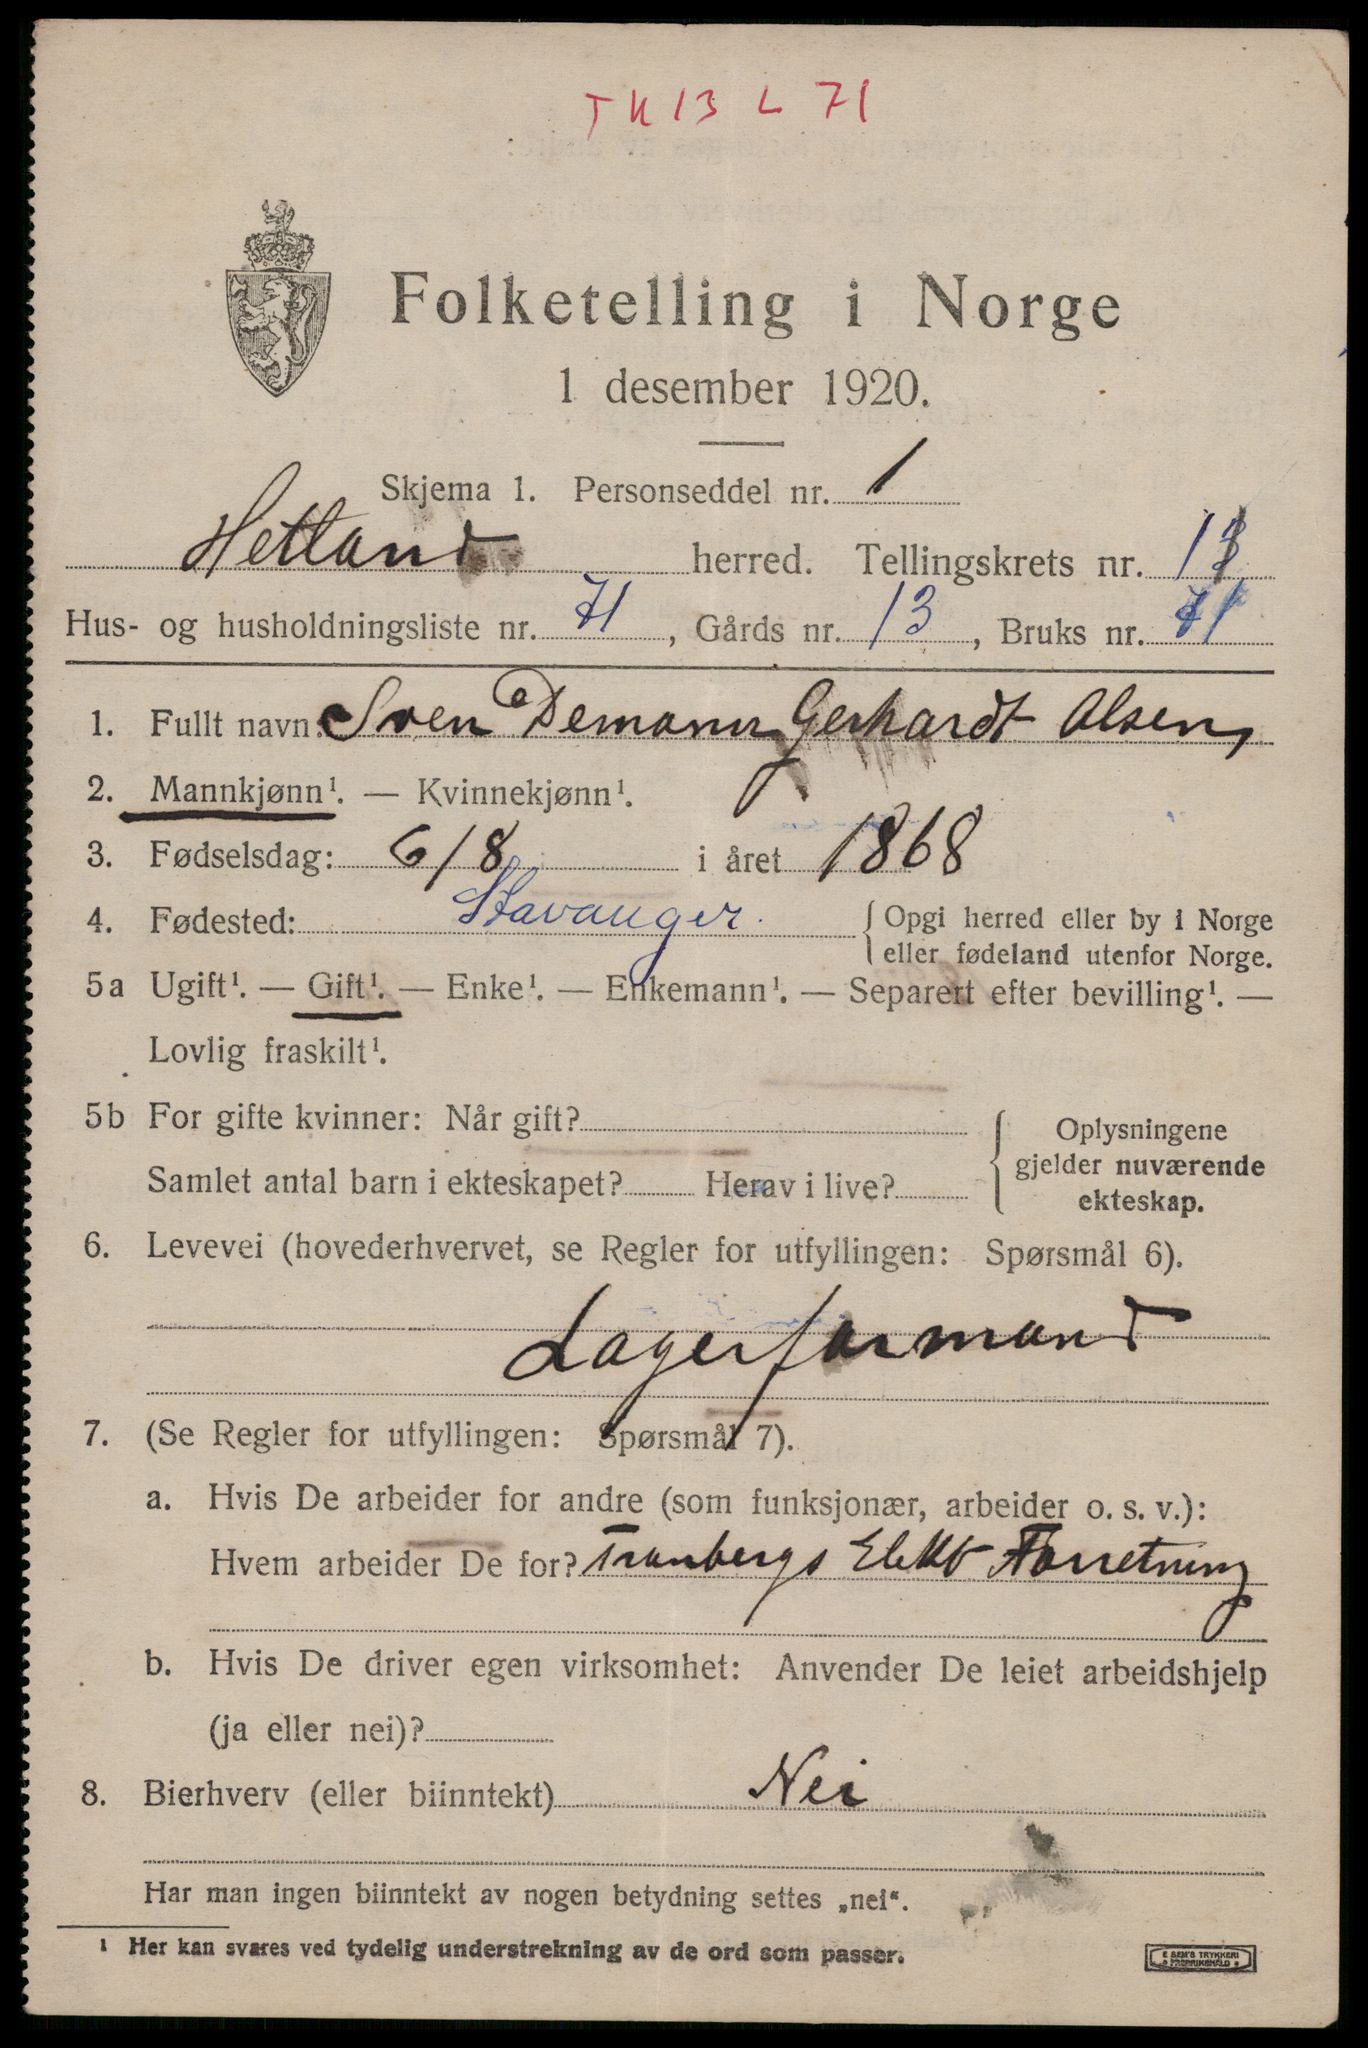 TK 13 L 71
Folketelling i Norge
1 desember 1920.
Skjema 1. Personseddel nr. 1
Hetland herred. Tellingskrets nr. 13
Hus- og husholdningsliste nr. 71, Gårds nr. 13, Bruks nr. 71
1. Fullt navn: Sven Demann Gerhardt Olsen,
2. Mannkjønn¹. — Kvinnekjønn¹.
3. Fødselsdag: 6/8 i året 1868
4. Fødested: Stavanger. { Opgi herred eller by i Norge
eller fødeland utenfor Norge.
5a Ugift¹. — Gift¹. — Enke¹. — Enkemann¹. — Separert efter bevilling¹. —
Lovlig fraskilt¹.
5b For gifte kvinner: Når gift?
Samlet antal barn i ekteskapet? Herav i live?
{ Oplysningene
gjelder nuværende
ekteskap.
6. Levevei (hovederhvervet, se Regler for utfyllingen: Spørsmål 6).
Lagerformand
7. (Se Regler for utfyllingen: Spørsmål 7).
a. Hvis De arbeider for andre (som funksjonær, arbeider o. s. v.):
Hvem arbeider De for? Tranbergs Elekt Forretning
b. Hvis De driver egen virksomhet: Anvender De leiet arbeidshjelp
(ja eller nei)?
8. Bierhverv (eller biinntekt) Nei
Har man ingen biinntekt av nogen betydning settes „nei“.
¹ Her kan svares ved tydelig understrekning av de ord som passer.
E SEM'S TRYKKERI
FREDRIKSHALD